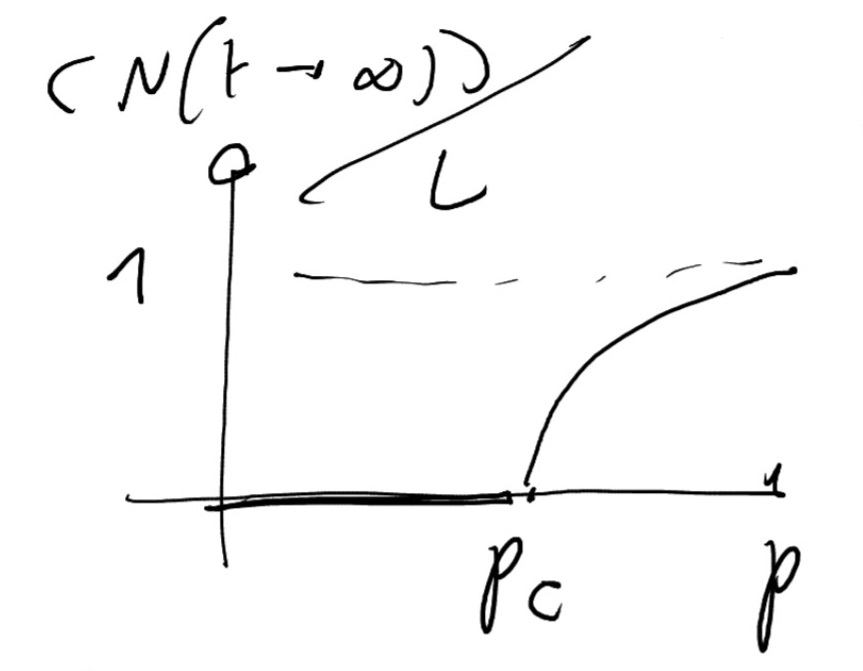 ⟨N(t→∞)⟩
L
1
1
pc
p